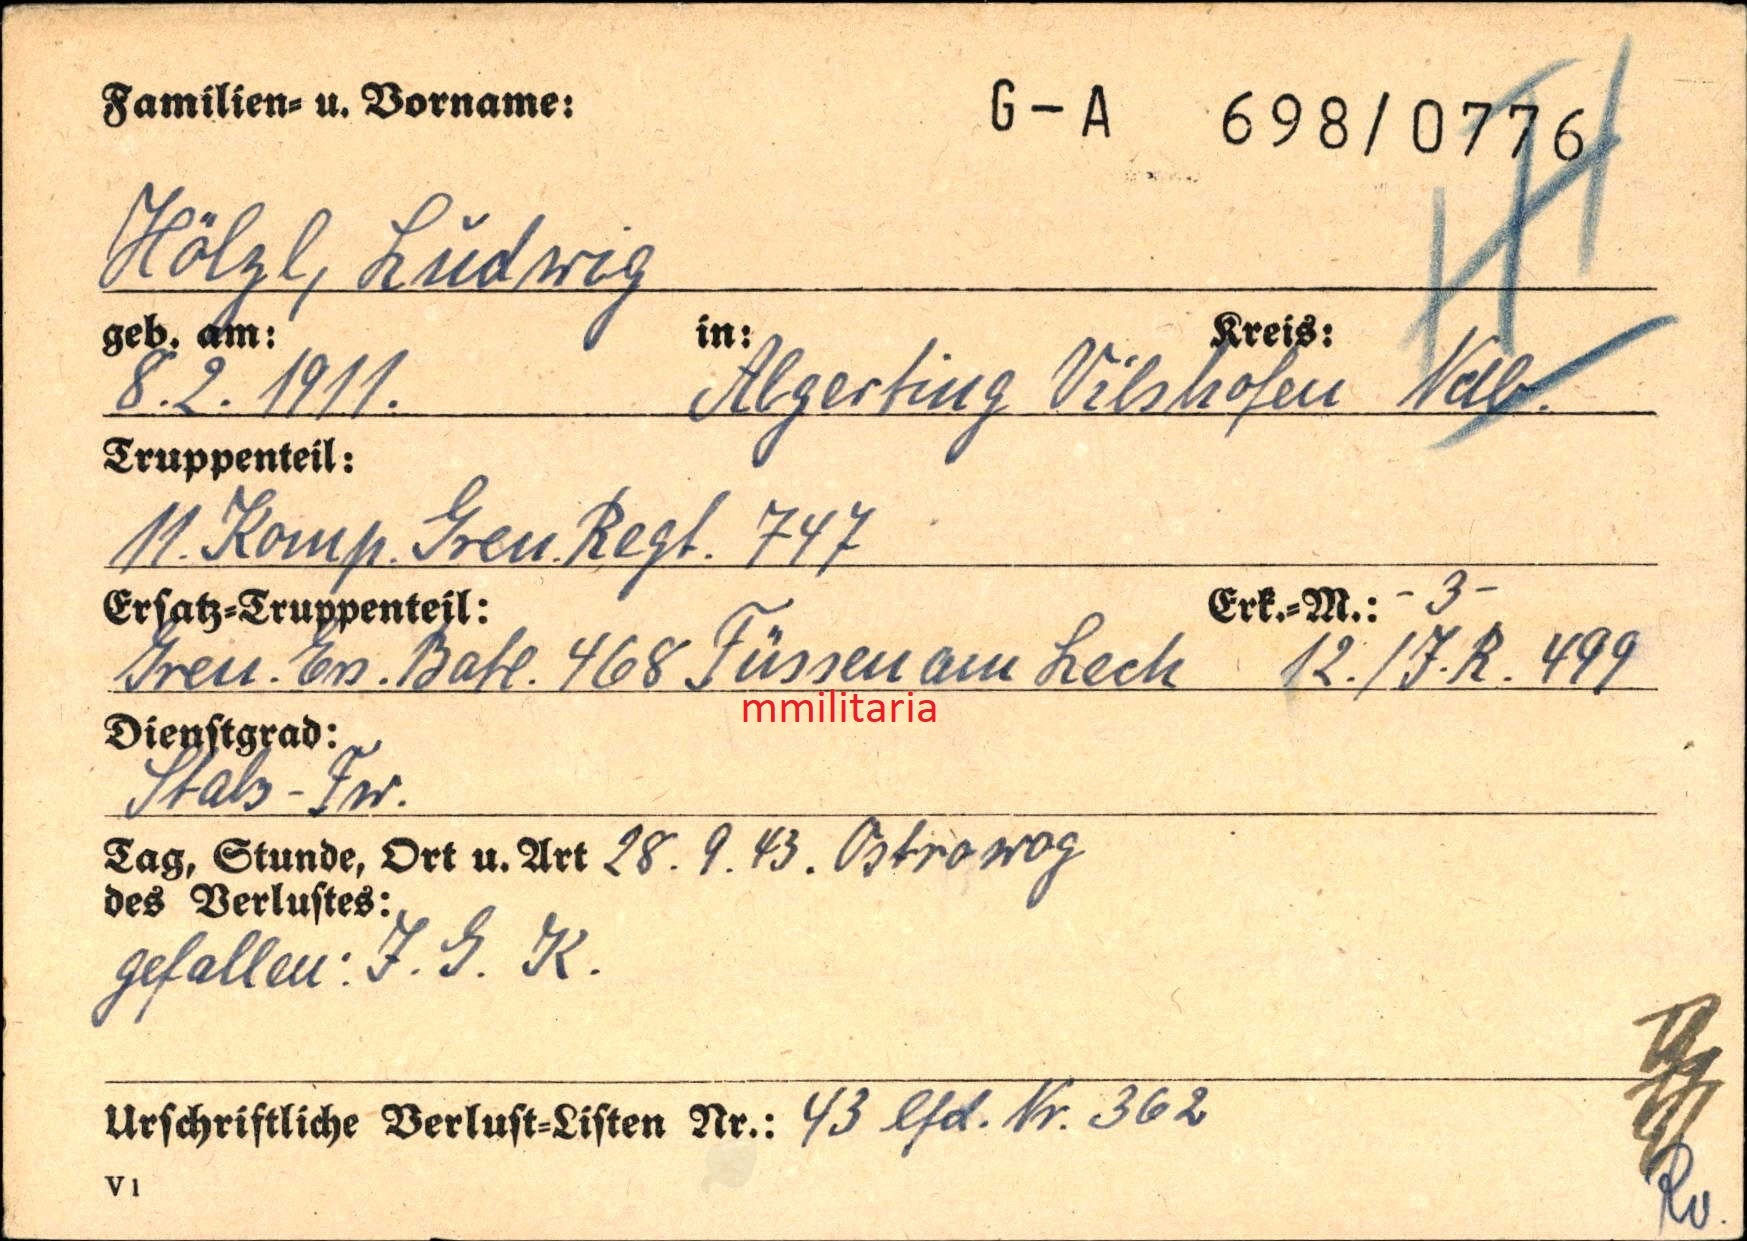 Familien- u. Vorname:
G-A 698/0776
Hölzl, Ludwig
geb. am: in: Kreis:
8.2.1911. Algerting Vilshofen Ndb.
Truppenteil:
11. Komp. Gren. Regt. 747
Ersatz-Truppenteil: Erk.-M.: -3-
Gren. Ers. Batl. 468 Füssen am Lech 12./J.R. 499
mmilitaria
Dienstgrad:
Stabs-Fw.
Tag, Stunde, Ort u. Art 28.9.43. Ostrowog
des Verlustes:
gefallen: J. G. K.
Urschriftliche Verlust-Listen Nr.: 43 lfd. Nr. 362
V 1